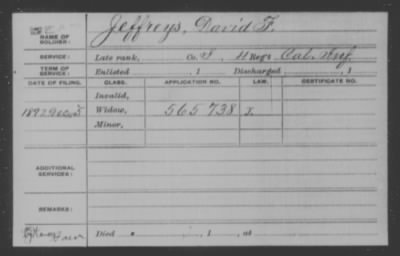 NAME OF SOLDIER: Jeffreys, David F.
SERVICE: Late rank, Co. I, 4 Reg't Cal. Inf
TERM OF SERVICE: Enlisted , 1 Discharged , 1
DATE OF FILING. CLASS. APPLICATION NO. LAW. CERTIFICATE NO.
Invalid,
1892 Widow, 565 738
Minor,
ADDITIONAL SERVICES:
REMARKS:
Died , 1 , at